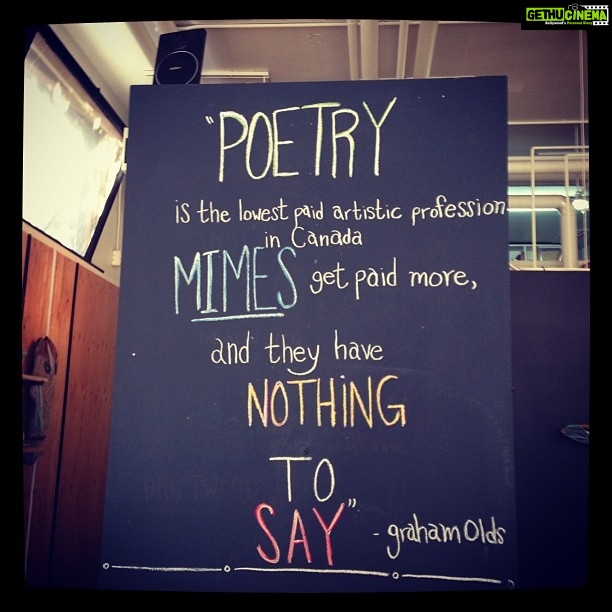 GETHUCINEMA
"POETRY
is the lowest paid artistic profession
in Canada
MIMES get paid more,
and they have
NOTHING
TO
SAY"
- graham Olds